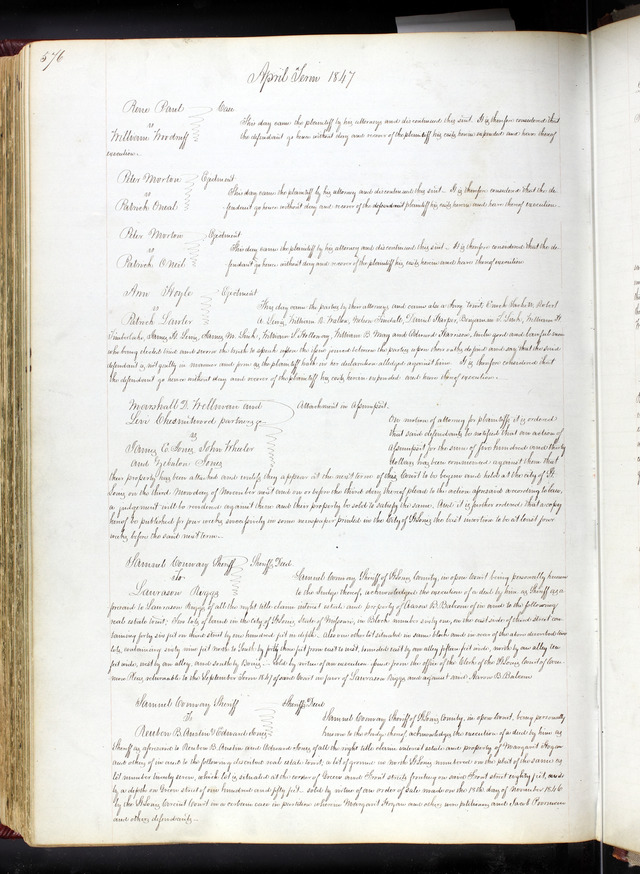 576
April Term 1847
Rene Paul
vs
William Woodruff
Case
This day came the plaintiff by his attorney and discontinued this suit. It is therefore considered that
the defendant go hence without day and recover of the plaintiff his costs herein expended and have thereof
execution.
Peter Morton
vs
Patrick O'Neal
Ejectment
This day came the plaintiff by his attorney and discontinued this suit. It is therefore considered that the de-
fendant go hence without day and recover of the defendant plaintiff his costs herein and have thereof execution
Peter Morton
vs
Patrick O'Neil
Ejectment
This day came the plaintiff by his attorney and discontinued this suit. It is therefore considered that the de-
fendant go hence without day and recover of the plaintiff his costs herein and have thereof execution
Ann Hoyle
vs
Patrick Lawler
Ejectment
This day came the parties by their attorneys and came also a Jury to wit, Robert
A. William N. Walton, Nelson Daniel Harper, Benjamin T. William H.
Timberlake, James H. James M. William S. Holloway, William B. May and Edward Harrison, twelve good and lawful men
who being elected tried and sworn the truth to speak upon the issue joined between the parties upon their oaths do find and say that the said
defendant is not guilty in manner and form as the plaintiff hath in her declaration alleged against him. It is therefore considered that
the defendant go hence without day and recover of the plaintiff his costs herein expended and have thereof execution.
Marshall D. Willman and
Levi Chesnutwood partners
vs
James C. Jones John Wheeler
and Zebulon Jones
Attachment in Assumpsit.
On motion of attorney for plaintiffs it is ordered
that said defendants be notified that an action of
Assumpsit for the sum of five hundred and thirty
dollars has been commenced against them that
their property has been attached and unless they appear at the next term of this Court to be begun and held at the city of St.
Louis on the third Monday of November next and on or before the third day thereof plead to the action aforesaid according to law,
a judgement will be rendered against them and their property be sold to satisfy the same. And it is further ordered that a copy
hereof be published for four weeks successively in some newspaper printed in the City of St Louis the last insertion to be at least four
weeks before the said next term.
Samuel Conway Sheriff
To
Lawrason Riggs
Sheriffs Deed.
Samuel Conway Sheriff of St Louis County, in open Court being personally known
to the Judge thereof, acknowledged the execution of a deed by him as Sheriff as a-
foresaid to Lawrason Riggs of all the right title claim interest estate and property of Aaron B. in and to the following
real estate to wit; One lot of land in the city of St Louis, State of Missouri, in Block number sixty one, on the east side of third street con-
taining forty six feet on third street by one hundred feet in depth. Also one other lot situated in same block and in rear of the above described
lots, containing sixty nine feet north to South by forty three feet from east to west, bounded east by an alley fifteen feet wide, north by an alley ten
feet wide, west by an alley, and south by sold by virtue of an execution from the office of the Clerk of the St Louis Court of Com-
mon Pleas, returnable to the September Term 1847 of said Court in favor of Lawrason Riggs and against said Aaron B.
Samuel Conway Sheriff
To
Reuben B. Austin & Edward Jones
Sheriffs Deed
Samuel Conway Sheriff of St Louis County, in open Court, being personally
known to the Judge thereof acknowledges the execution of a deed by him as
Sheriff as aforesaid to Reuben B. Austin and Edward Jones of all the right title claim interest estate and property of Margaret Hogan
and others of in and to the following described real estate to wit; a lot of ground in North St Louis numbered on the plat of the same as
lot number twenty seven, which lot is situated at the corner of Green and Front streets fronting on said Front street eighty feet, and
by a depth on Green street of one hundred and fifty feet. sold by virtue of an order of sale made on the 18th day of November 1846
by the St Louis Circuit Court in a certain case in partition wherein Margaret Hogan and others were petitioners, and Jacob
and others defendants.